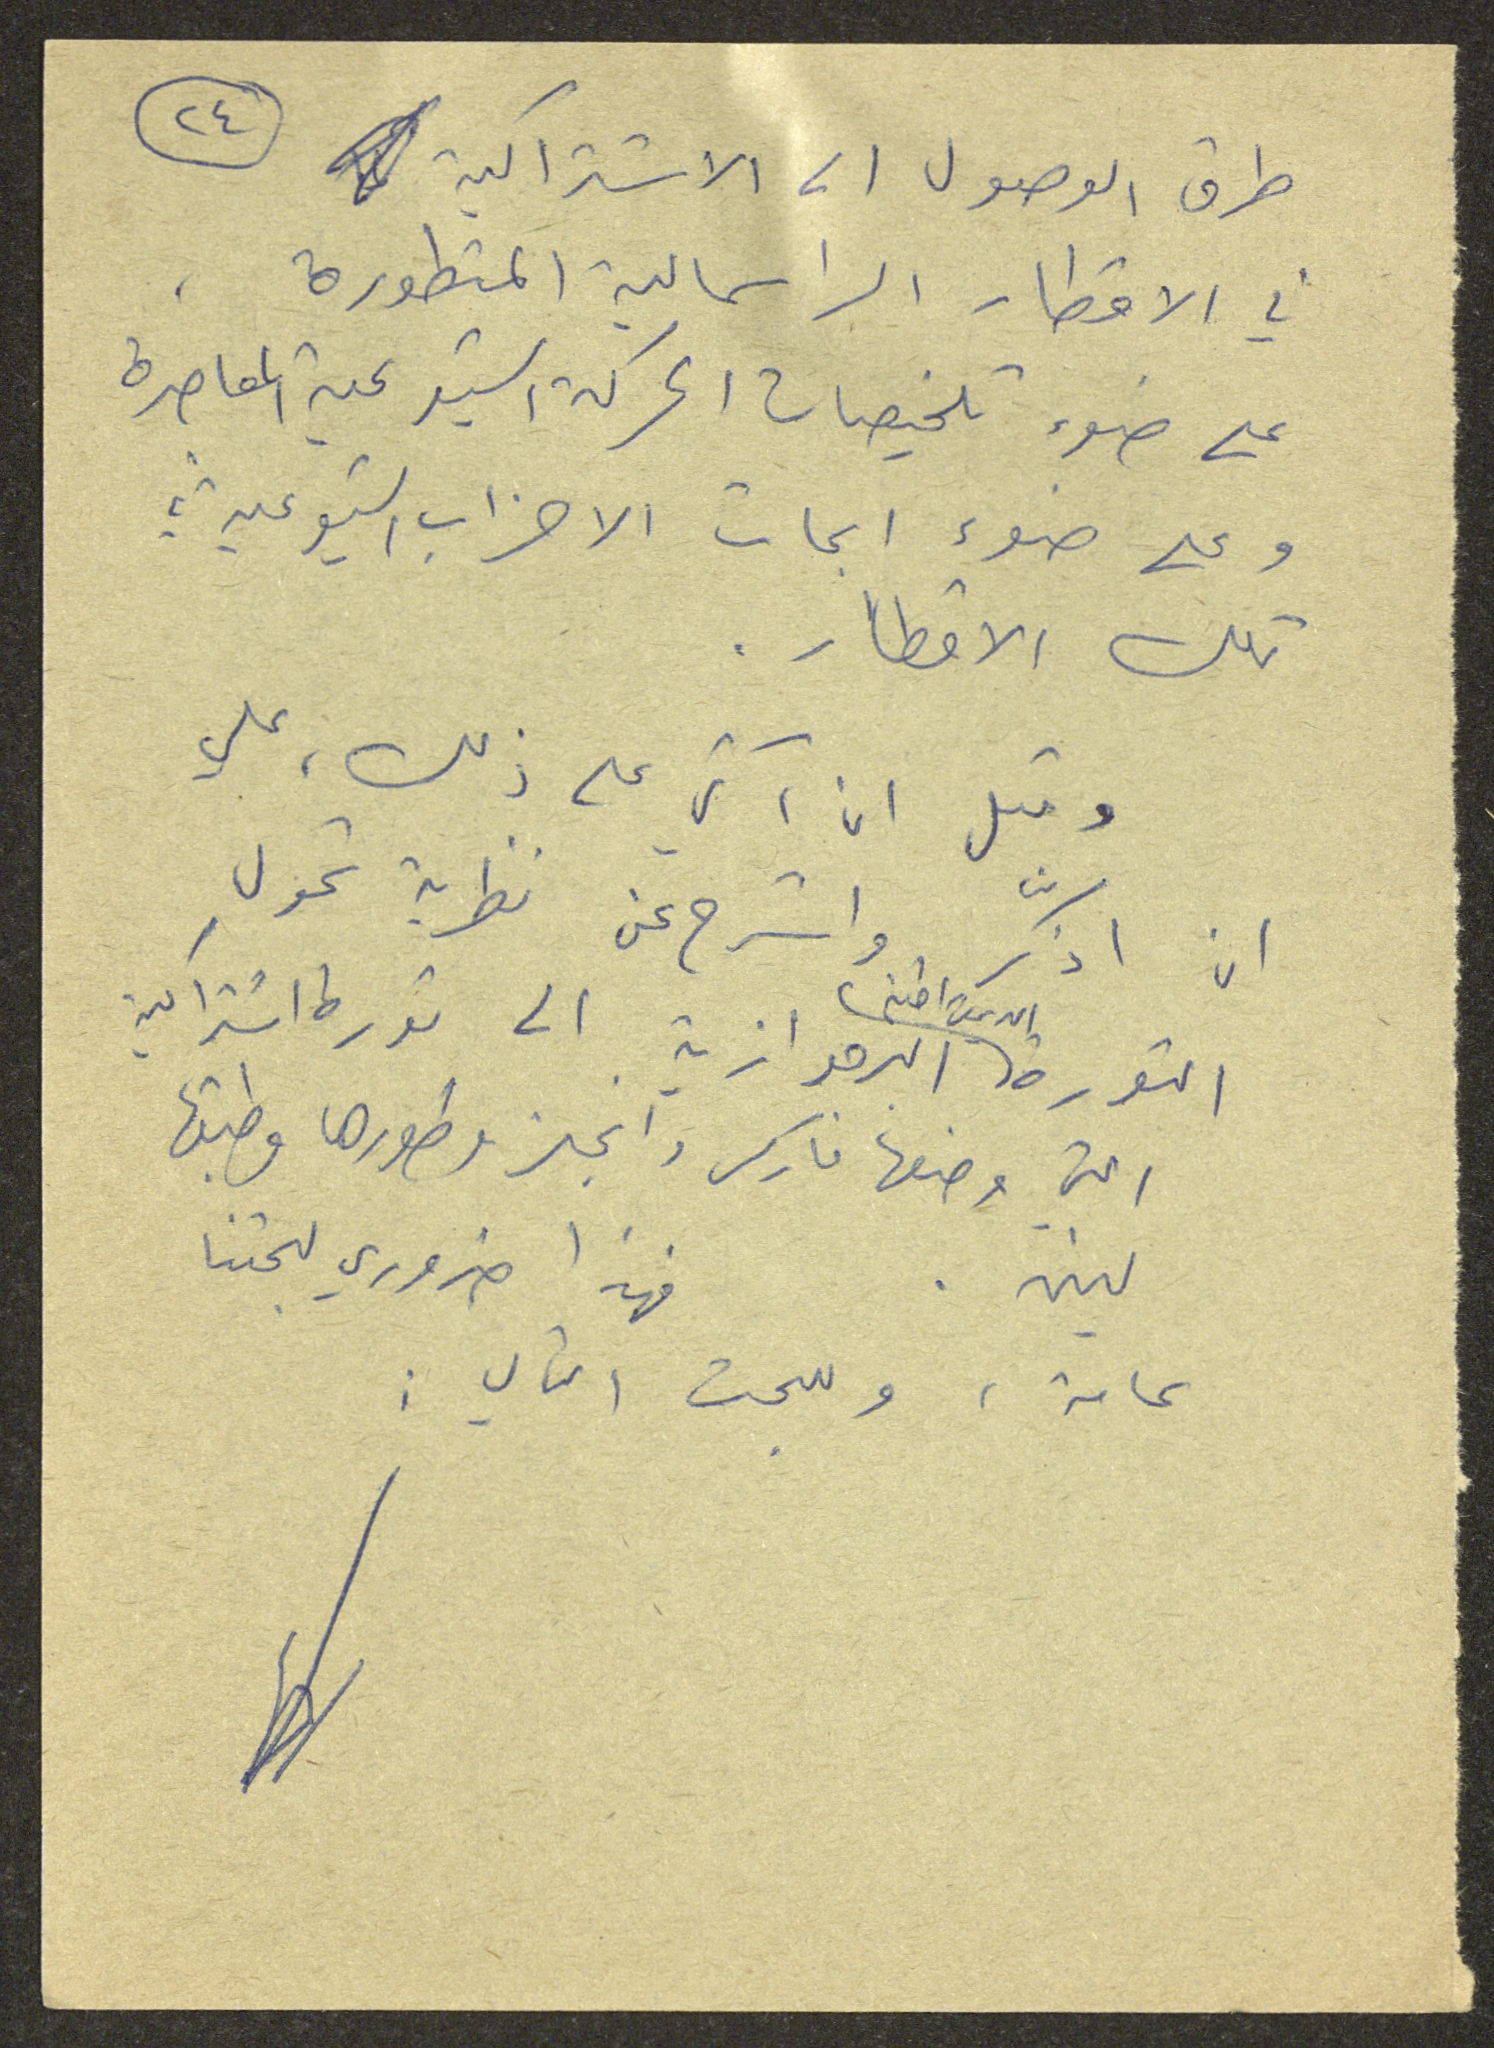 ٢٤
طرق الوصول الى الاشتراكية
في الاقطار الراسمالية المتطورة ،
على ضوء تلخيصات الحركة الشيوعية المعاصرة
وعلى ضوء ابحاث الاحزاب الشيوعية في
تلك الاقطار .
وقبل ان آتي على ذلك ، علي
ان اذكّر واشرح عن نظرية تحول
الثورة الديمقراطية البرجوازية الى ثورة اشتراكية
التي وضعها ماركس وانجلز وطورها وطبقها
لينين . فهذا ضروري لبحثنا
عامة ، وللبحث التالي :